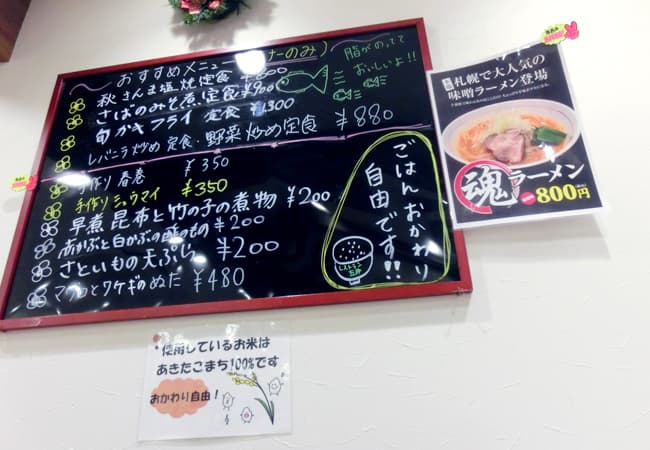 おすすめメニュー
脂がのってて
おいしいよ!!
秋さんま塩焼定食
さばのみそ煮定食 ¥900
旬カキフライ 定食 ¥1300
レバニラ炒め 定食・野菜炒め定食 ¥880
手作り 春巻 ¥350
手作りシュウマイ ¥350
早煮昆布と竹の子の煮物 ¥200
赤かぶと白かぶの酢のもの ¥200
さといもの天ぷら ¥200
マグロとワケギのぬた ¥480
ごはんおかわり
自由です!!
レストラン
札幌で大人気の
味噌ラーメン登場
魂ラーメン
800円
・使用しているお米は
あきたこまち100%です
おかわり自由！